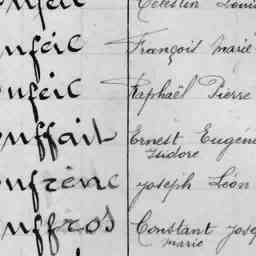 Célestin Louis
nféic François Marie
nféic Raphaël Pierre
nffait Ernest Eugène
Isidore
nfrène Joseph Léon
nffros Constant Jose
Marie